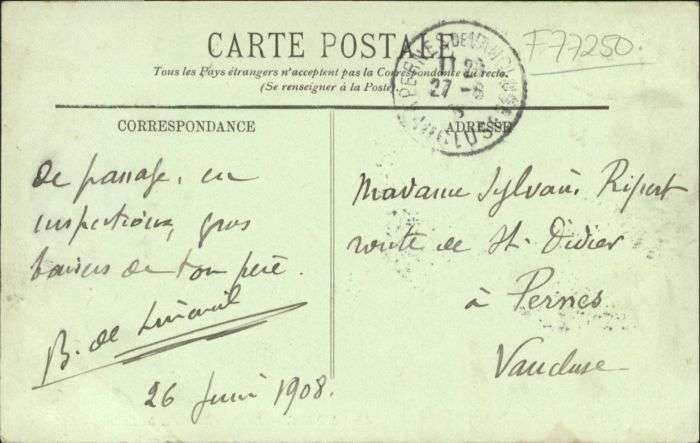 CARTE POSTALE
F77250
Tous les Pays étrangers n'acceptent pas la Correspondance au recto.
(Se renseigner à la Poste)
CORRESPONDANCE
ADRESSE
De passage, en
inspections, gros
baisers de ton père.
B. de
26 Juin 1908.
Madame Sylvain Ripert
route de St. Didier
à Pernes
Vaucluse
11 25
27 -6